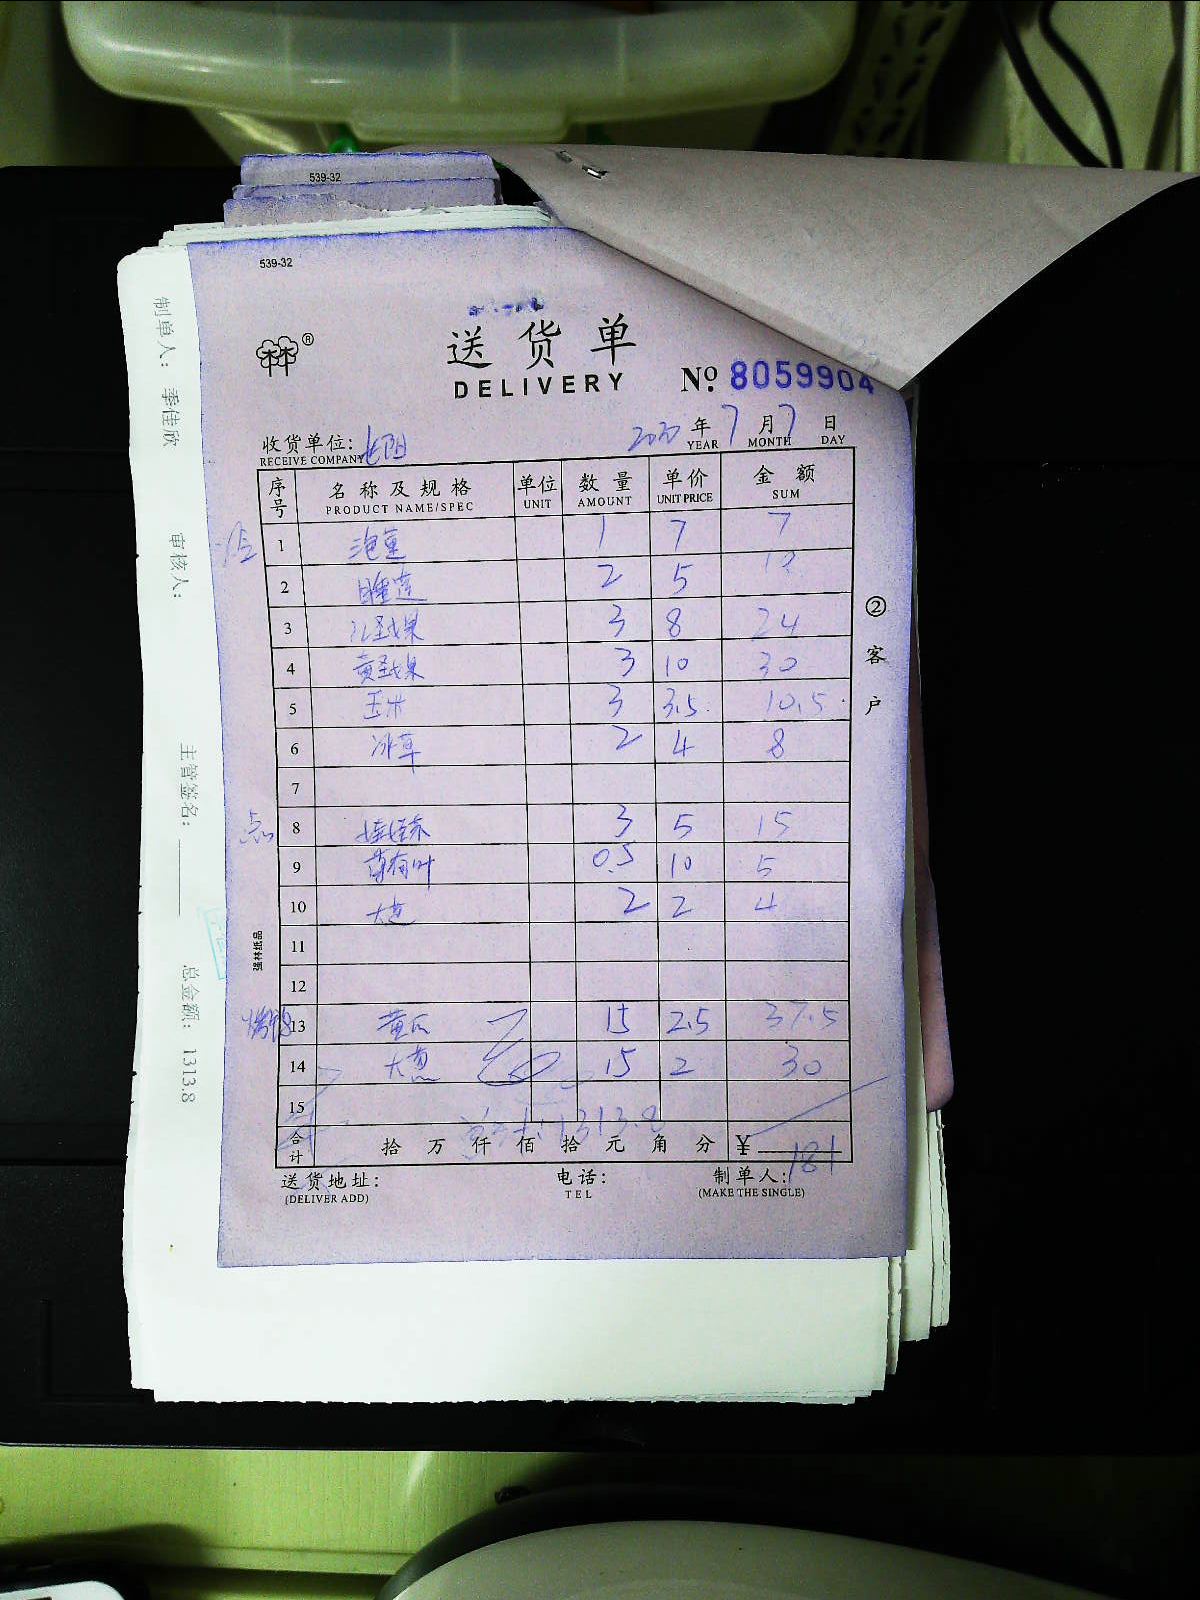 539-32
539-32
送货单
DELIVERY
№ 8059904
收货单位:
RECEIVE COMPANY
2020 年 7 月 7 日
YEAR MONTH DAY
序号 名称及规格 单位 数量 单价 金额
PRODUCT NAME/SPEC UNIT AMOUNT UNIT PRICE SUM
1 1 7 7
2 睡莲 2 5 10
3 红圣女果 3 8 24
4 黄圣女果 3 10 30
5 玉米 3 3.5 10.5
6 冰草 2 4 8
7
点
8 娃娃菜 3 5 15
9 2 0.5 10 5
10 大葱 2 2 4
11
12
13 黄瓜 15 2.5 37.5
14 大葱 15 2 30
15
1313.8
合计 拾 万 仟 佰 拾 元 角 分 ¥ 181
送货地址: 电话: 制单人:
(DELIVER ADD) TEL (MAKE THE SINGLE)
② 客户
强林纸品
制单人: 季佳欣
审核人:
主管签名:
总金额: 1313.8